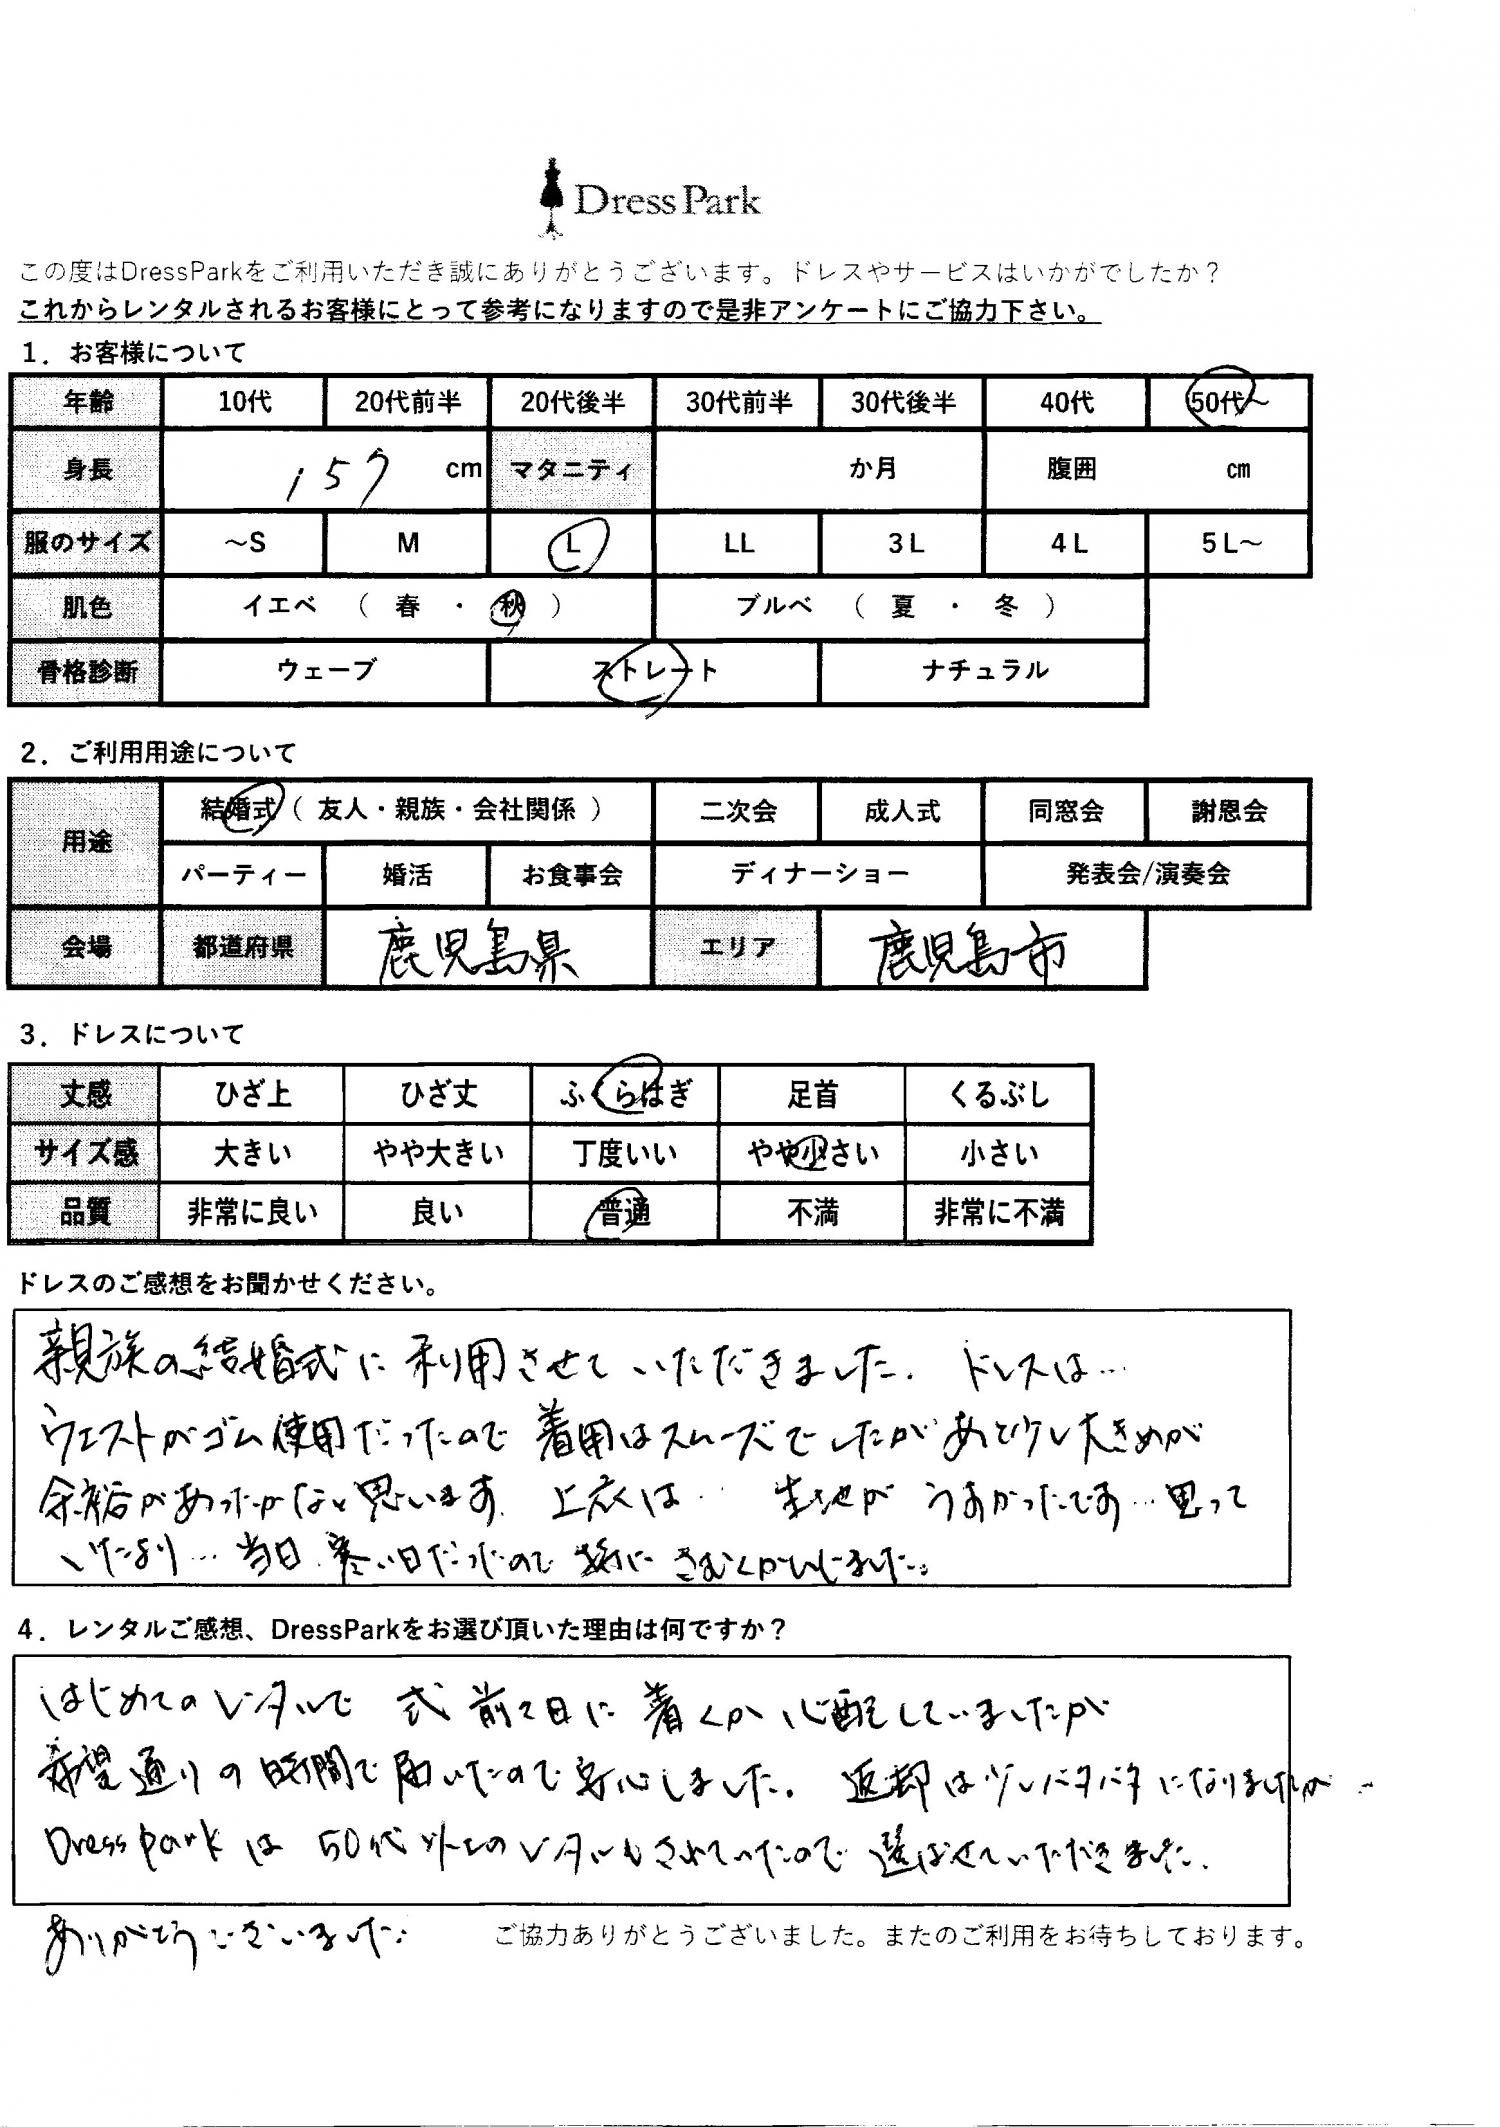 Dress Park
この度はDressParkをご利用いただき誠にありがとうございます。ドレスやサービスはいかがでしたか？
これからレンタルされるお客様にとって参考になりますので是非アンケートにご協力下さい。
1．お客様について
年齢 10代 20代前半 20代後半 30代前半 30代後半 40代 50代～
身長 157 cm マタニティ か月 腹囲 cm
服のサイズ ～S M L LL 3L 4L 5L～
肌色 イエベ （ 春 ・ 秋 ） ブルベ （ 夏 ・ 冬 ）
骨格診断 ウェーブ ストレート ナチュラル
2．ご利用用途について
用途 結婚式（ 友人・親族・会社関係 ） 二次会 成人式 同窓会 謝恩会
パーティー 婚活 お食事会 ディナーショー 発表会/演奏会
会場 都道府県 鹿児島県 エリア 鹿児島市
3．ドレスについて
丈感 ひざ上 ひざ丈 ふくらはぎ 足首 くるぶし
サイズ感 大きい やや大きい 丁度いい やや小さい 小さい
品質 非常に良い 良い 普通 不満 非常に不満
ドレスのご感想をお聞かせください。
親族の結婚式に利用させていただきました. ドレスは…
ウエストがゴム使用だったので着用はスムーズでしたがあと少し大きめが
余裕があったかなと思います. 上衣は… 生地がうすかったです…思って
いたより…当日.寒い日だったので特にさむくかんじました。
4．レンタルご感想、DressParkをお選び頂いた理由は何ですか？
はじめてのレンタルで 式前々日に着くか心配していましたが
希望通りの時間で届いたので安心しました. 返却は少しバタバタになりましたが…
Dress Parkは 50代以上のレンタルもされていたので選ばせていただきました.
ありがとうございました.
ご協力ありがとうございました。またのご利用をお待ちしております。